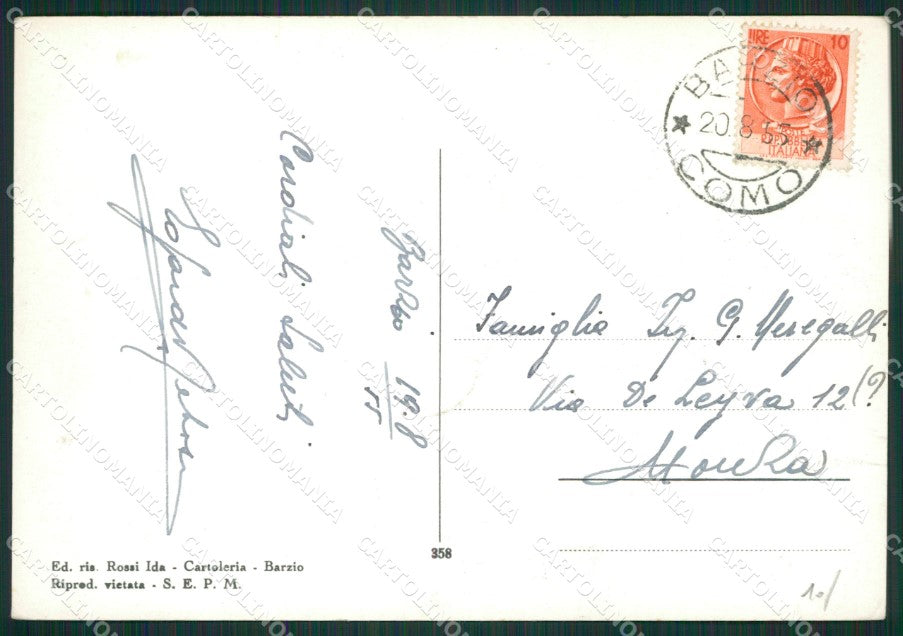 Barzio 19.8
55
Cordiali saluti
LIRE 10
BARZIO
20.8.55
COMO
POSTE
REPUBBLICA
ITALIANA
Famiglia Ing. G. Meregalli
Via De Leyva 12 (?
Monza
358
Ed. ris. Rossi Ida - Cartoleria - Barzio
Riprod. vietata - S. E. P. M.
CARTOLINOMANIA